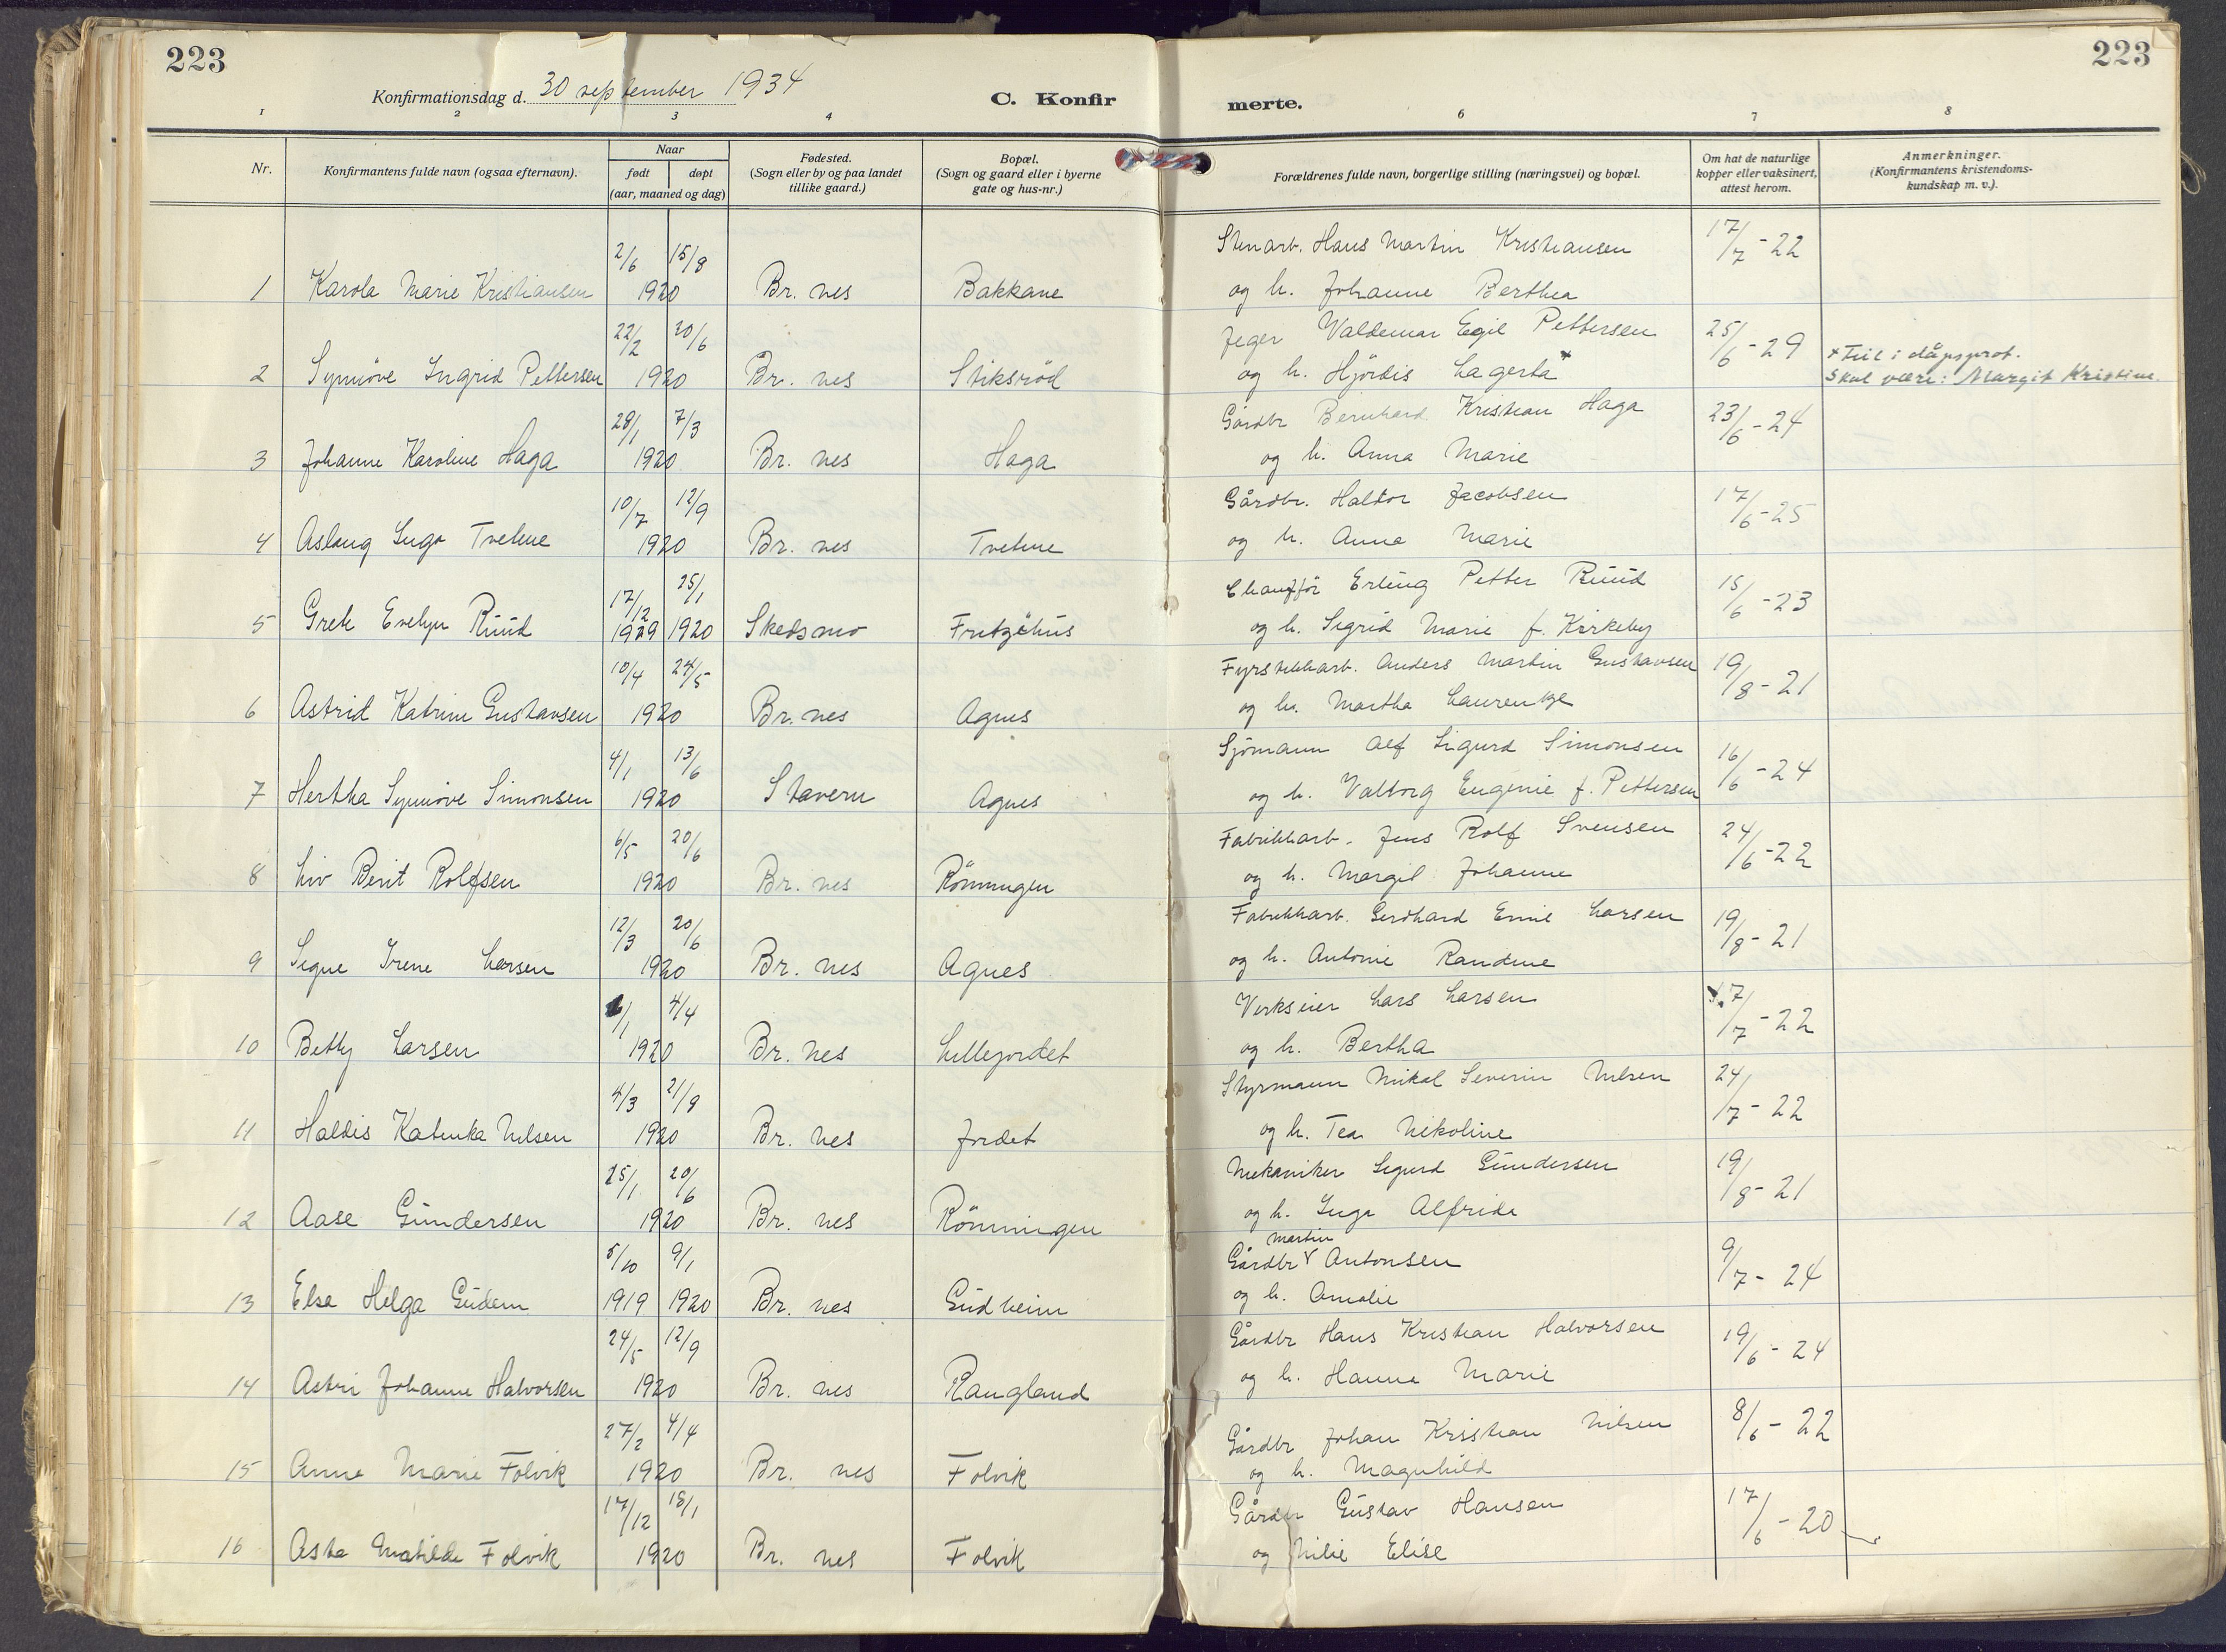 223
223
Konfirmationsdag d. 30 september 1934
C. Konfirmerte.
1 2 3 4 6 7 8
Nr.
Konfirmantens fulde navn (ogsaa efternavn).
Naar
født døpt
(aar, maaned og dag)
Fødested.
(Sogn eller by og paa landet
tillike gaard.)
Bopæl.
(Sogn og gaard eller i byerne
gate og hus-nr.)
Forældrenes fulde navn, borgerlige stilling (næringsvei) og bopæl.
Om hat de naturlige
kopper eller vaksinert,
attest herom.
Anmerkninger.
(Konfirmantens kristendoms-
kundskap m. v.).
2/6 15/8 Stenarb. Hans Martin Kristiansen 17/7-22
1 Karola Marie Kristiansen 1920 Br. nes Bakkane og h. Johanne Berthea
22/2 20/6 Jeger Valdemar Egil Pettersen 25/6-29
2 Synnöve Ingrid Pettersen 1920 Br. nes Stiksröd og h. Hjördis Lagerta x
x Feil i dåpsprot.
Skal være: Margit Kristine.
28/1 7/3 Gårdbr Bernhard Kristian Haga 23/6-24
3 Johanne Karoline Haga 1920 Br. nes Haga og h. Anna Marie
10/7 12/9 Gårdbr. Haldor Jacobsen 17/6-25
4 Aslaug Inga Tvetene 1920 Br. nes Tvetene og h. Anna Marie
17/12 25/1 Chaufför Erling Petter Ruud 15/6-23
5 Grete Evelyn Ruud 1929 1920 Skedsmo Fritzöhus og h. Sigrid Marie f. Kirkeby
10/4 24/5 Fyrstikkarb. Anders Martin Gustavsen 19/8-21
6 Astrid Katrine Gustavsen 1920 Br. nes Agnes og h. Martha Laurentze
4/1 13/6 Sjömann Alf Sigurd Simonsen 16/6-24
7 Hertha Synnöve Simonsen 1920 Stavern Agnes og h. Valborg Eugenie f. Pettersen
6/5 20/6 Fabrikkarb. Jens Rolf Svensen 24/6-22
8 Liv Berit Rolfsen 1920 Br. nes Rönningen og h. Margit Johanne
12/3 20/6 Fabrikkarb. Gerdhard Emil Larsen 19/8-21
9 Signe Irene Larsen 1920 Br. nes Agnes og h. Antonie Randine
6/1 4/4 Verkseier Lars Larsen 17/7-22
10 Betty Larsen 1920 Br. nes Lillejordet og h. Bertha
4/3 21/9 Styrmann Mikal Severin Nilsen 24/7-22
11 Haldis Katinka Nilsen 1920 Br. nes Jordet og h. Tea Nikoline
25/1 20/6 Mekaniker Sigurd Gundersen 19/8-21
12 Aase Gundersen 1920 Br. nes Rönningen og h. Inga Alfrida
5/10 9/1 Gårdbr Martin Antonsen 9/7-24
13 Else Helga Gudem 1919 1920 Br. nes Gudheim og h. Amalie
24/5 12/9 Gårdbr Hans Kristian Halvorsen 19/6-24
14 Astri Johanne Halvorsen 1920 Br. nes Raugland og h. Hanna Marie
27/2 4/4 Gårdbr Johan Kristian Nilsen 8/6-22
15 Anne Marie Folvik 1920 Br. nes Folvik og h. Magnhild
17/12 18/1 Gårdbr Gustav Hansen 17/6-20
16 Asta Matilde Folvik 1920 Br. nes Folvik og Milie Elise